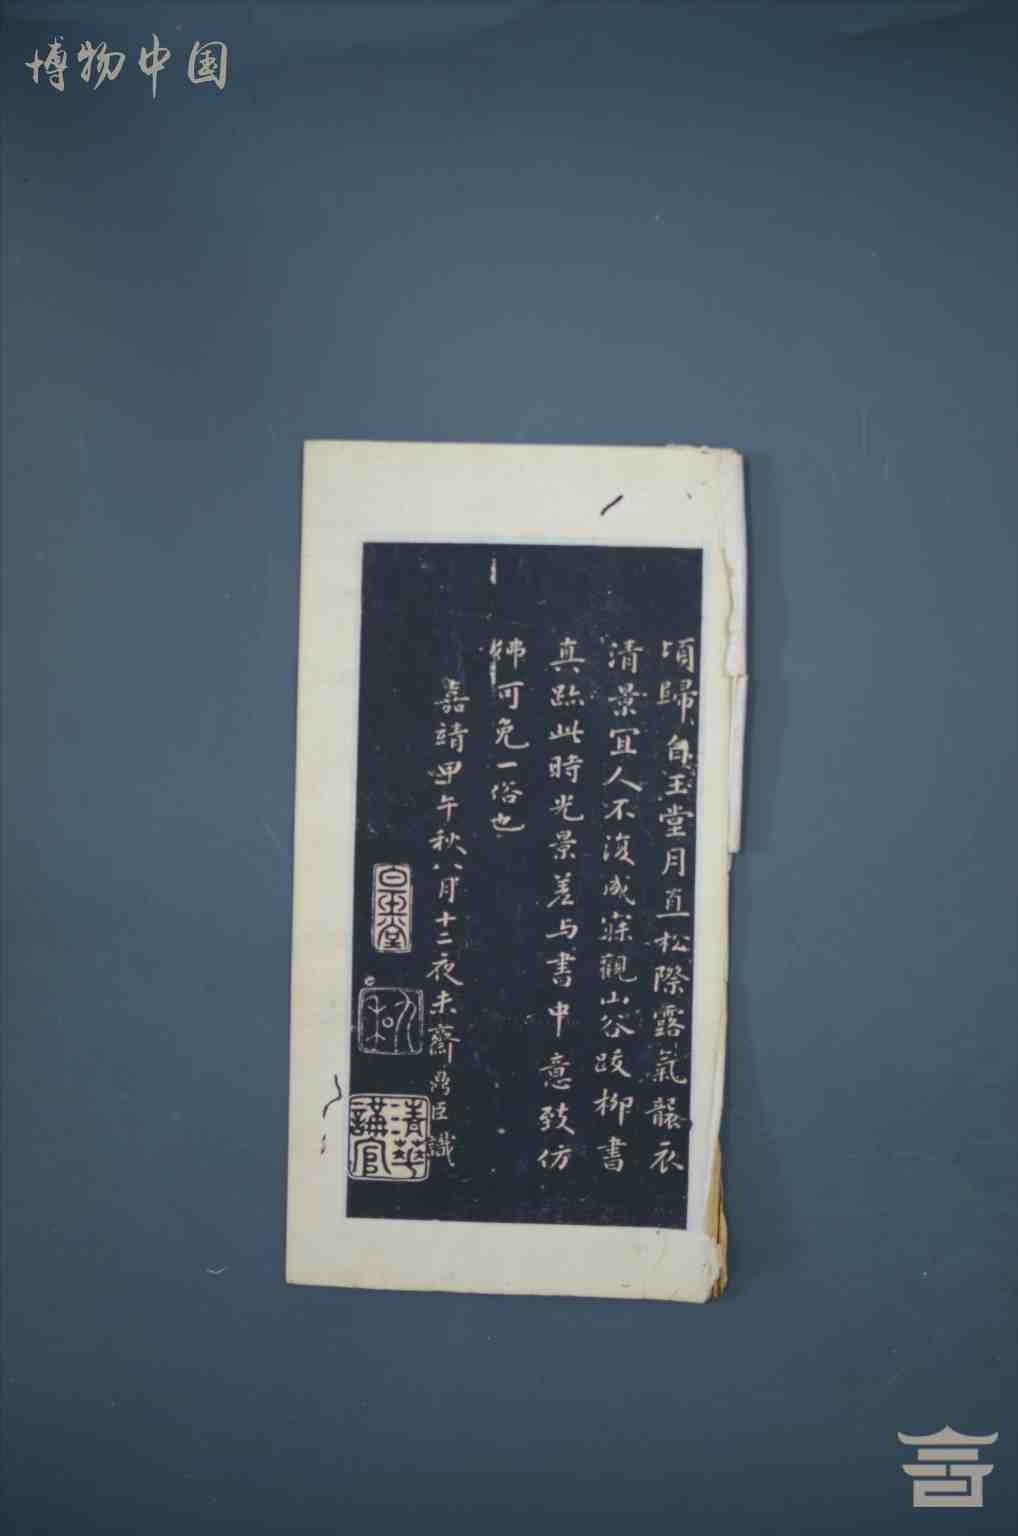 博物中国
頃歸白玉堂月直松際露氣襲衣
清景宜人不復成寐觀山谷跋柳書
真跡此時光景差与書中意致仿
彿可免一俗也
嘉靖甲午秋八月十二夜未齋鼎臣識
白玉堂
清華講官